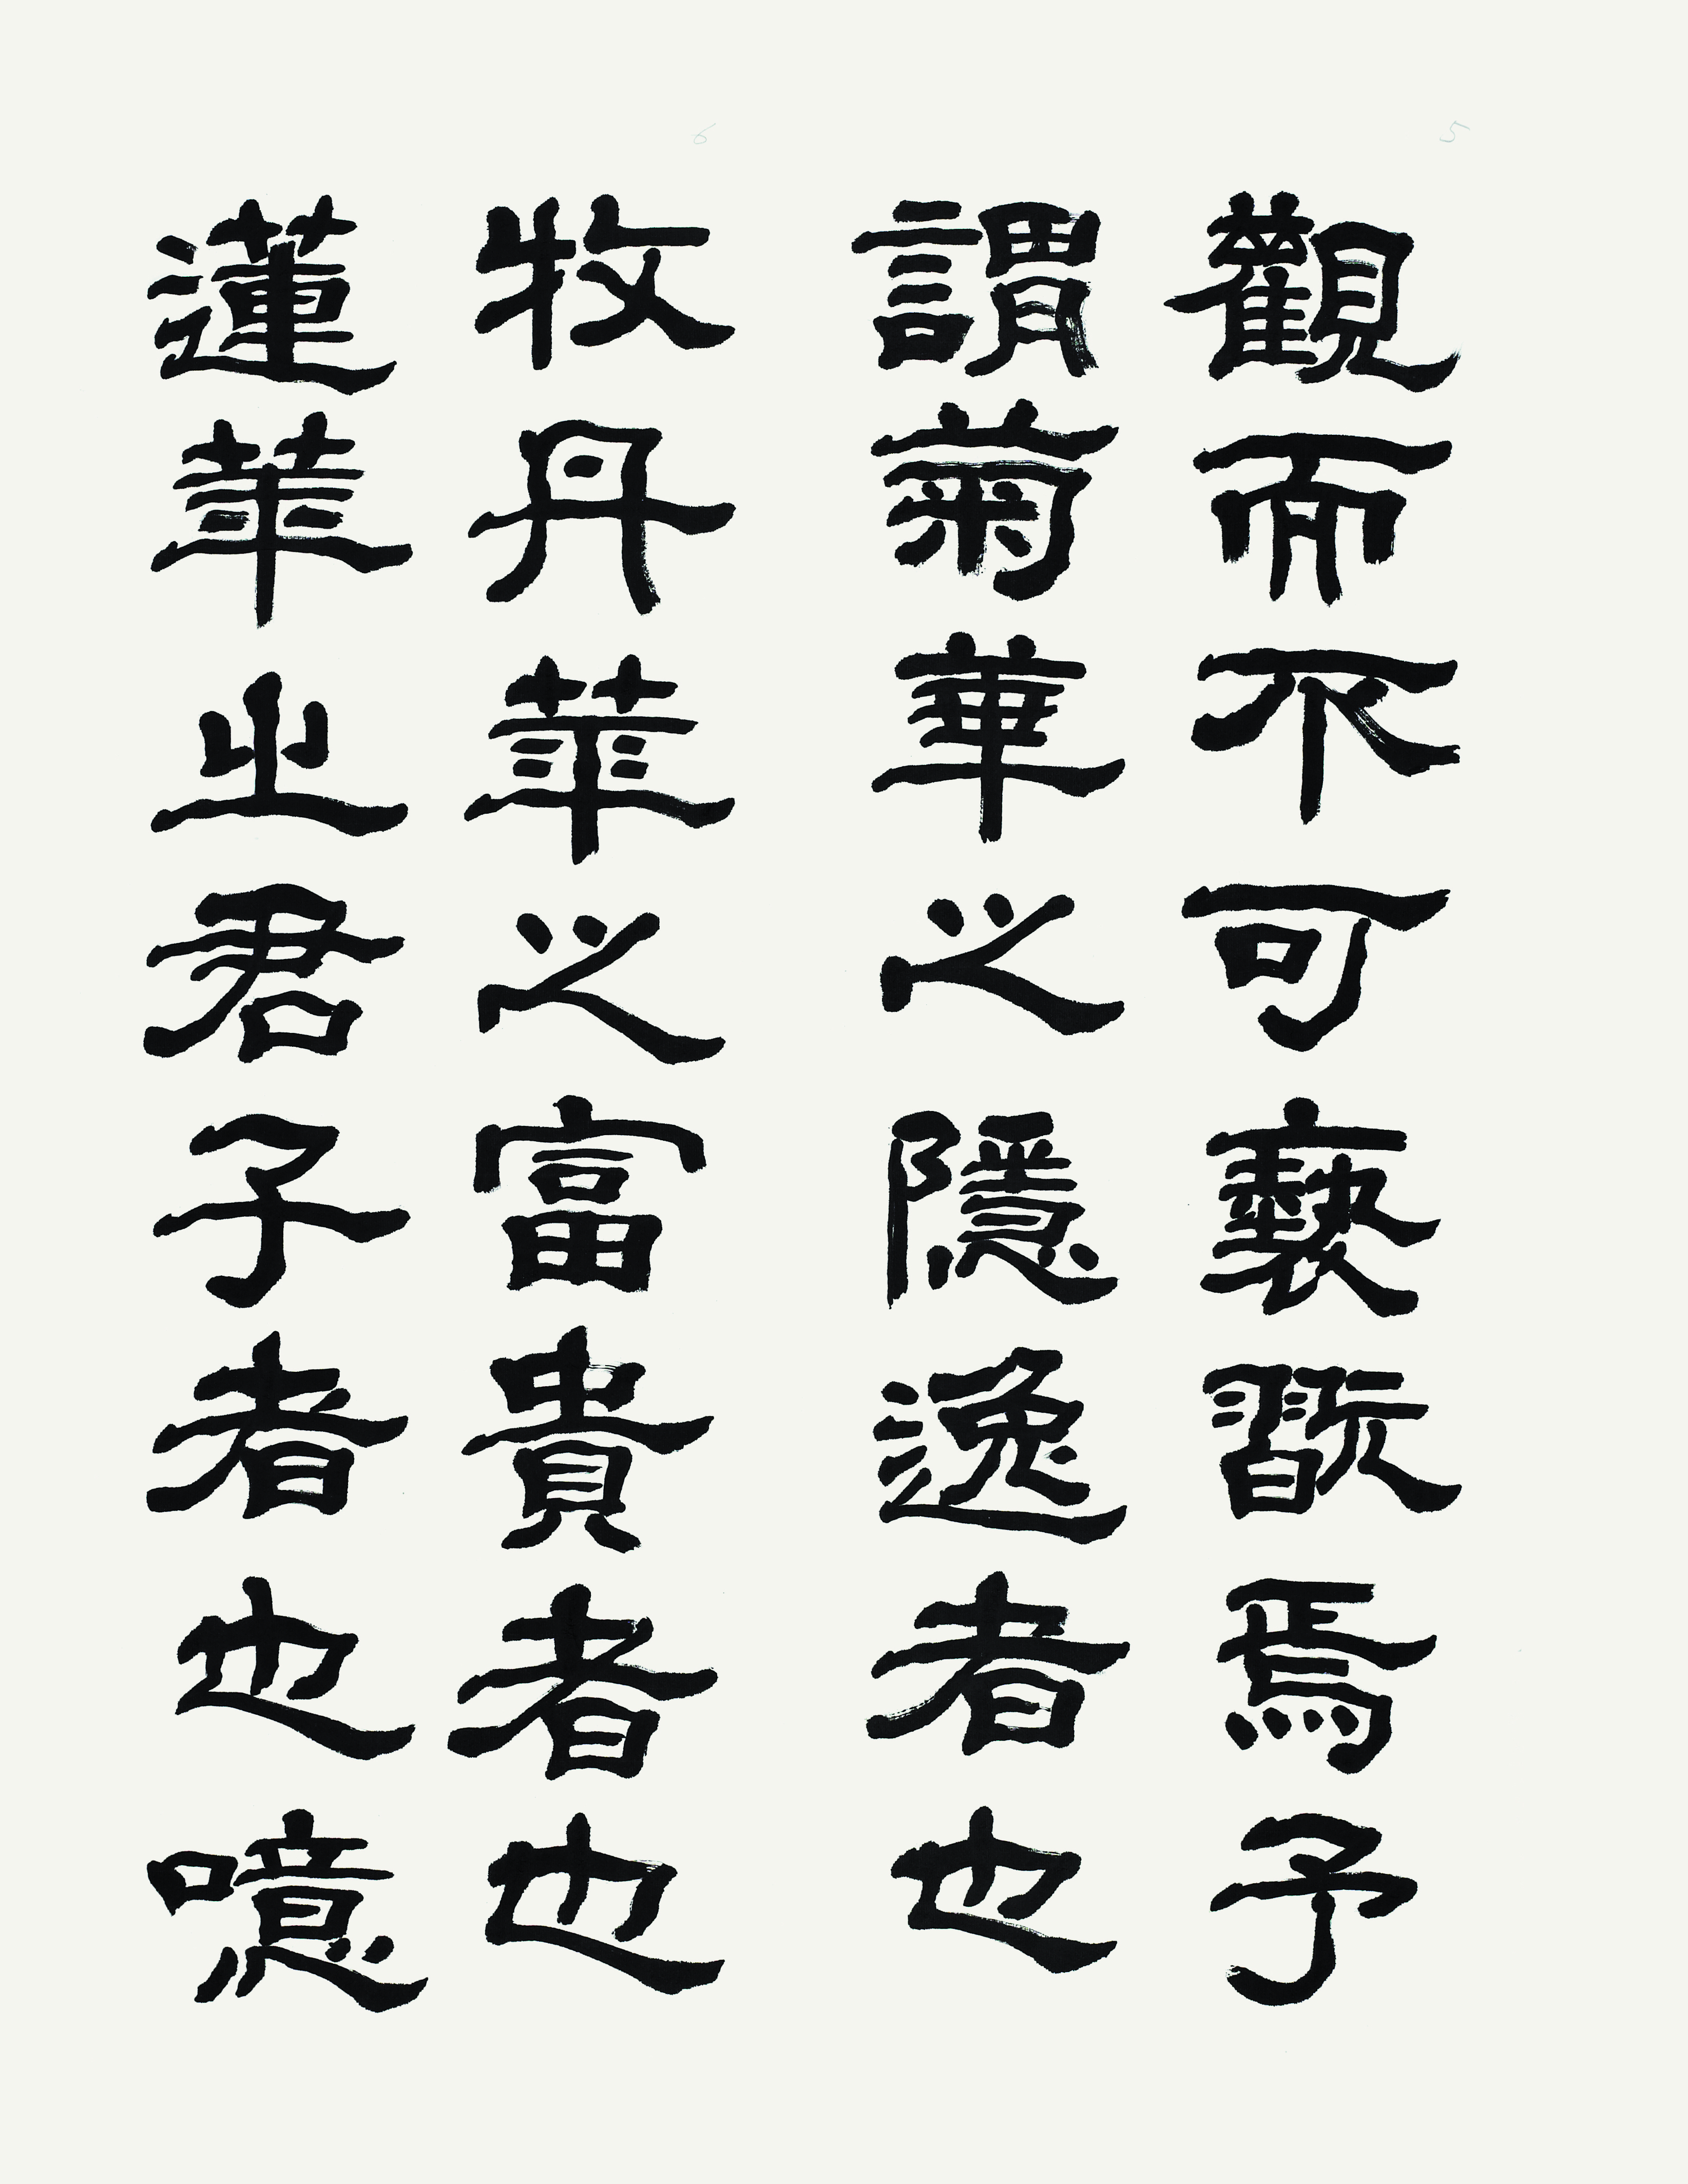 觀而不可褻翫焉予
謂菊華之隱逸者也
牧丹華之富貴者也
蓮華之君子者也噫
5
6